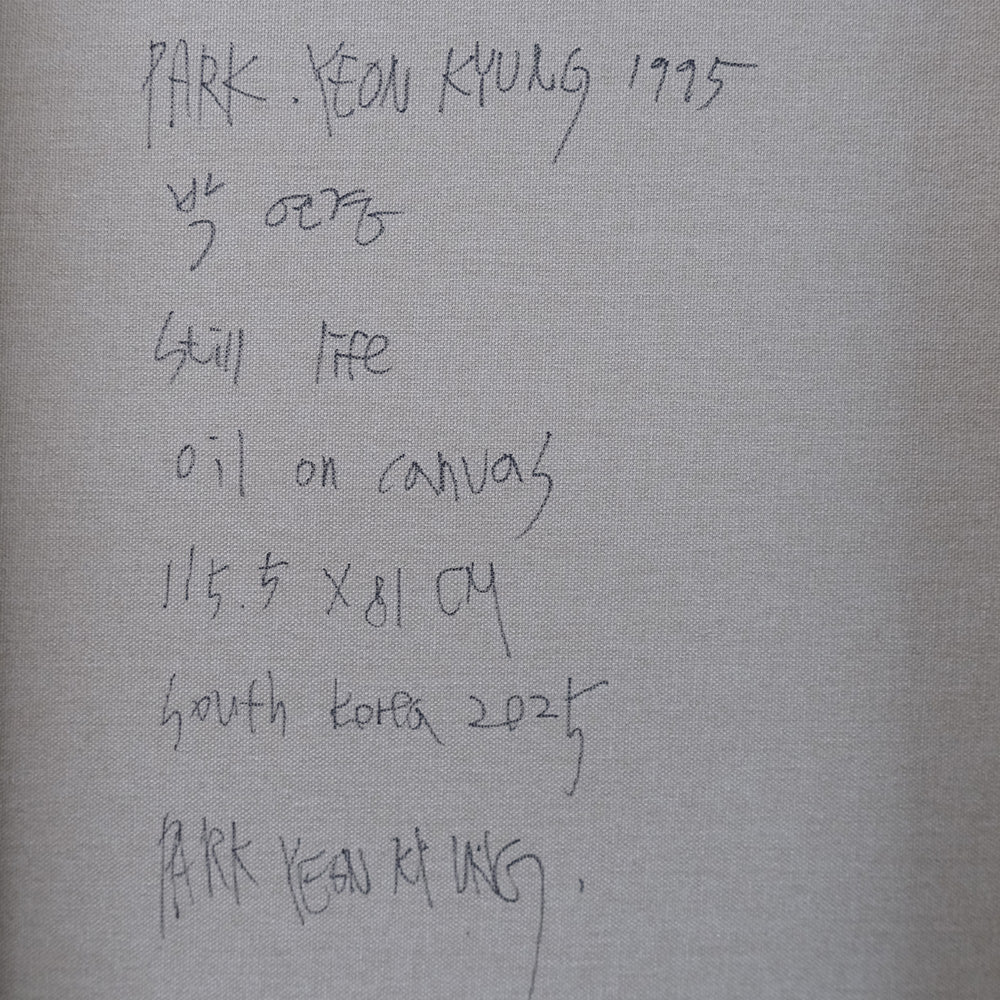 PARK. YEON KYUNG 1995
박 연경
still life
oil on canvas
115.5 X 81 CM
south korea 2025
PARK YEON KYUNG.